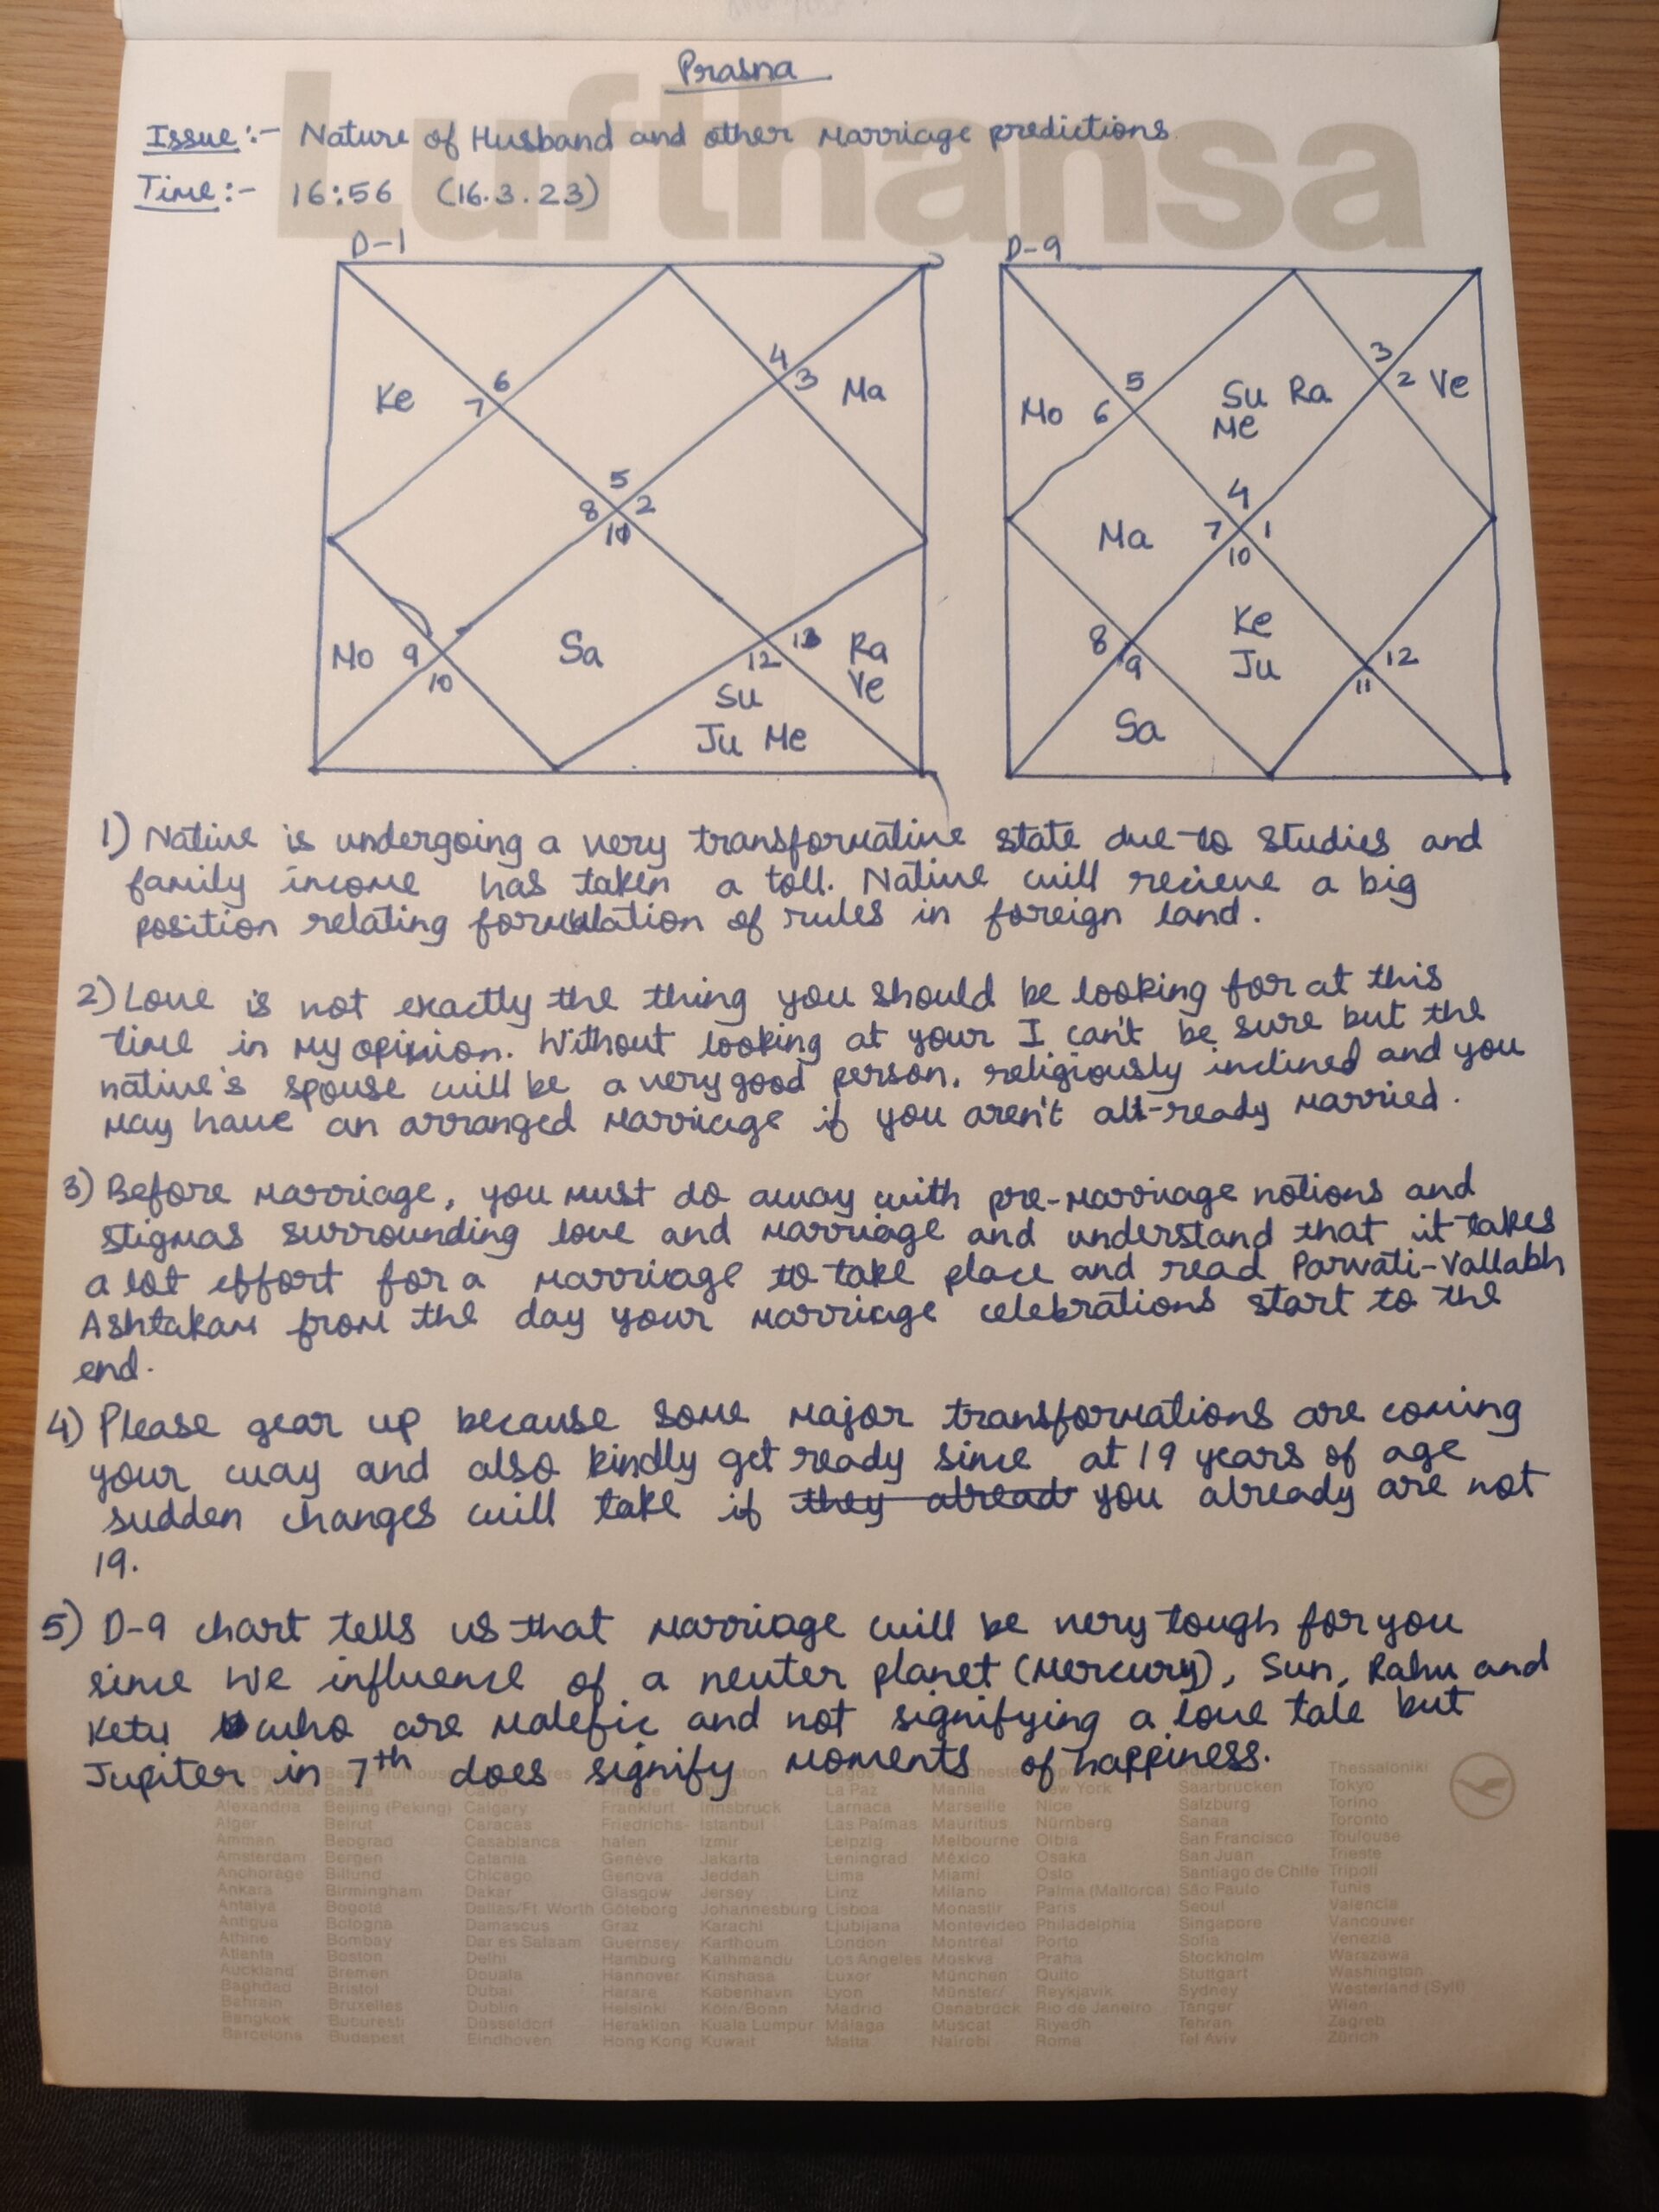 Lufthansa
Prasna
Issue:- Nature of Husband and other Marriage predictions
Time:- 16:56 (16.3.23)
D-1
D-9
Ke
6
7
4
3
Ma
5
8
2
Mo
9
10
Sa
12
Su
Ju Me
Ra
Ve
Mo
5
6
Su Ra
Me
3
2
Ve
4
7
1
10
Ma
8
9
Sa
Ke
Ju
12
11
1) Native is undergoing a very transformative state due to studies and
family income has taken a toll. Native will recieve a big
position relating formulation of rules in foreign land.
2) Love is not exactly the thing you should be looking for at this
time in my opinion. Without looking at your I can't be sure but the
native's spouse will be a very good person, religiously inclined and you
may have an arranged marriage if you aren't all-ready married.
3) Before marriage, you must do away with pre-marriage notions and
stigmas surrounding love and marriage and understand that it takes
a lot effort for a marriage to take place and read Parvati-Vallabh
Ashtakam from the day your marriage celebrations start to the
end.
4) Please gear up because some major transformations are coming
your way and also kindly get ready since at 19 years of age
sudden changes will take if they alread you already are not
19.
5) D-9 chart tells us that marriage will be very tough for you
since we influence of a neuter planet (Mercury), Sun, Rahu and
Ketu who are malefic and not signifying a love tale but
Jupiter in 7th does signify moments of happiness.
Alexandria Beijing (Peking) Calgary Frankfurt Innsbruck Larnaca Marseille Nice Salzburg Torino
Alger Beirut Caracas Friedrichs- Istanbul Las Palmas Mauritius Nürnberg Sanaa Toronto
Amman Beograd Casablanca hafen Izmir Leipzig Melbourne Olbia San Francisco Toulouse
Amsterdam Bergen Catania Genève Jakarta Leningrad México Osaka San Juan Trieste
Anchorage Billund Chicago Genova Jeddah Lima Miami Oslo Santiago de Chile Tripoli
Ankara Birmingham Dakar Glasgow Jersey Linz Milano Palma (Mallorca) São Paulo Tunis
Antalya Bogotá Dallas/Ft. Worth Göteborg Johannesburg Lisboa Monastir Paris Seoul Valencia
Antigua Bologna Damascus Graz Karachi Ljubljana Montevideo Philadelphia Singapore Vancouver
Athine Bombay Dar es Salaam Guernsey Karthoum London Montréal Porto Sofia Venezia
Atlanta Boston Delhi Hamburg Kathmandu Los Angeles Moskva Praha Stockholm Warszawa
Auckland Bremen Douala Hannover Kinshasa Luxor München Quito Stuttgart Washington
Baghdad Bristol Dubai Harare København Lyon Münster/ Reykjavik Sydney Westerland (Sylt)
Bahrain Bruxelles Dublin Helsinki Köln/Bonn Madrid Osnabrück Rio de Janeiro Tanger Wien
Bangkok Bucuresti Düsseldorf Heraklion Kuala Lumpur Málaga Muscat Riyadh Tehran Zagreb
Barcelona Budapest Eindhoven Hong Kong Kuwait Malta Nairobi Roma Tel Aviv Zürich